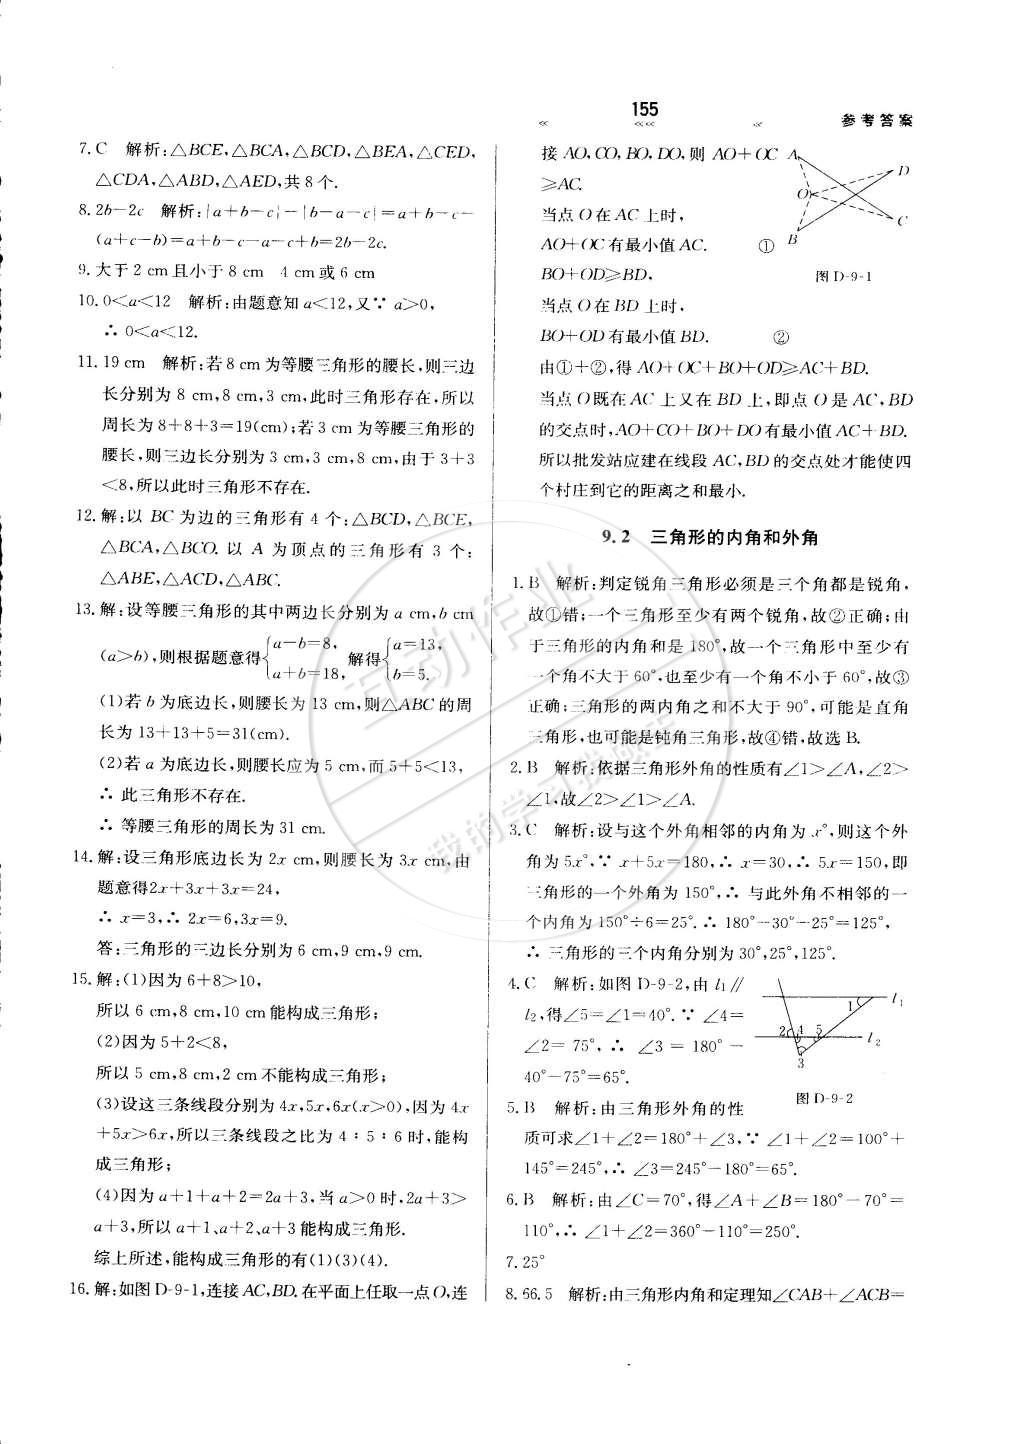 155
参考答案
7. C 解析:△BCE,△BCA,△BCD,△BEA,△CED,
△CDA,△ABD,△AED,共8个.
8. 2b-2c 解析:|a+b-c|-|b-a-c|=a+b-c-
(a+c-b)=a+b-c-a-c+b=2b-2c.
9. 大于2 cm且小于8 cm 4 cm或6 cm
10. 0<a<12 解析:由题意知a<12,又∵a>0,
∴0<a<12.
11. 19 cm 解析:若8 cm为等腰三角形的腰长,则三边
长分别为8 cm,8 cm,3 cm,此时三角形存在,所以
周长为8+8+3=19(cm);若3 cm为等腰三角形的
腰长,则三边长分别为3 cm,3 cm,8 cm,由于3+3
<8,所以此时三角形不存在.
12. 解:以BC为边的三角形有4个:△BCD,△BCE,
△BCA,△BCO.以A为顶点的三角形有3个:
△ABE,△ACD,△ABC.
13. 解:设等腰三角形的其中两边长分别为a cm,b cm
(a>b),则根据题意得{a-b=8, a+b=18, 解得{a=13, b=5.
(1)若b为底边长,则腰长为13 cm,则△ABC的周
长为13+13+5=31(cm).
(2)若a为底边长,则腰长应为5 cm,而5+5<13,
∴此三角形不存在.
∴等腰三角形的周长为31 cm.
14. 解:设三角形底边长为2x cm,则腰长为3x cm,由
题意得2x+3x+3x=24,
∴x=3,∴2x=6,3x=9.
答:三角形的三边长分别为6 cm,9 cm,9 cm.
15. 解:(1)因为6+8>10,
所以6 cm,8 cm,10 cm能构成三角形;
(2)因为5+2<8,
所以5 cm,8 cm,2 cm不能构成三角形;
(3)设这三条线段分别为4x,5x,6x(x>0),因为4x
+5x>6x,所以三条线段之比为4:5:6时,能构
成三角形;
(4)因为a+1+a+2=2a+3,当a>0时,2a+3>
a+3,所以a+1、a+2、a+3能构成三角形.
综上所述,能构成三角形的有(1)(3)(4).
16. 解:如图D-9-1,连接AC,BD.在平面上任取一点O,连
接AO,CO,BO,DO,则AO+OC
≥AC.
当点O在AC上时,
AO+OC有最小值AC. ①
BO+OD≥BD,
当点O在BD上时,
BO+OD有最小值BD. ②
A
D
O
C
B
图D-9-1
由①+②,得AO+OC+BO+OD≥AC+BD.
当点O既在AC上又在BD上,即点O是AC,BD
的交点时,AO+CO+BO+DO有最小值AC+BD.
所以批发站应建在线段AC,BD的交点处才能使四
个村庄到它的距离之和最小.
9.2 三角形的内角和外角
1. B 解析:判定锐角三角形必须是三个角都是锐角,
故①错;一个三角形至少有两个锐角,故②正确;由
于三角形的内角和是180°,故一个三角形中至少有
一个角不大于60°,也至少有一个角不小于60°,故③
正确;三角形的两内角之和不大于90°,可能是直角
三角形,也可能是钝角三角形,故④错,故选B.
2. B 解析:依据三角形外角的性质有∠1>∠A,∠2>
∠1,故∠2>∠1>∠A.
3. C 解析:设与这个外角相邻的内角为x°,则这个外
角为5x°,∵x+5x=180,∴x=30,∴5x=150,即
三角形的一个外角为150°,∴与此外角不相邻的一
个内角为150°÷6=25°.∴180°-30°-25°=125°,
∴三角形的三个内角分别为30°,25°,125°.
4. C 解析:如图D-9-2,由l₁∥
l₂,得∠5=∠1=40°.∵∠4=
∠2=75°,∴∠3=180°-
40°-75°=65°.
1
l₁
2 4 5
l₂
3
图D-9-2
5. B 解析:由三角形外角的性
质可求∠1+∠2=180°+∠3,∵∠1+∠2=100°+
145°=245°,∴∠3=245°-180°=65°.
6. B 解析:由∠C=70°,得∠A+∠B=180°-70°=
110°,∴∠1+∠2=360°-110°=250°.
7. 25°
8. 66.5 解析:由三角形内角和定理知∠CAB+∠ACB=
互动作业
我的学习我做主